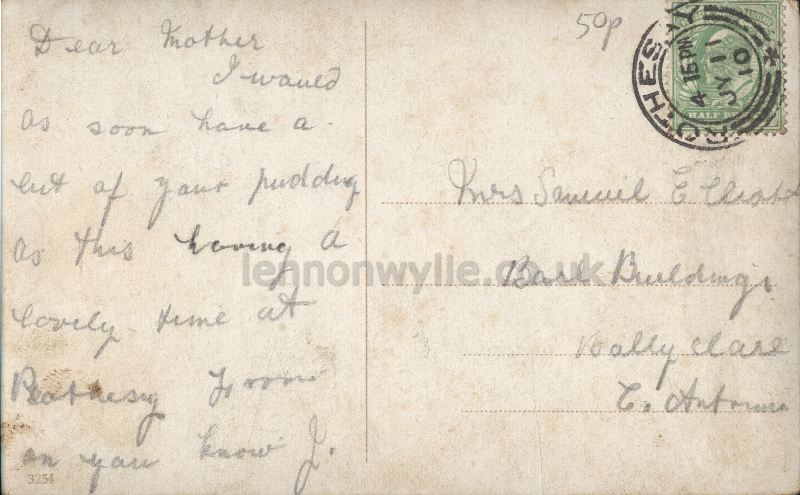 Dear Mother
I would
as soon have a
cut of your pudding
as this having a
lovely time at
Rothesay from
an you know J.
3254
50p
ROTHESAY
4 15 PM
JY 11
10
HALF PE
Mrs Samuel E
Barl Buildings
Bally clare
C. Antrim
lennonwylie.co.uk